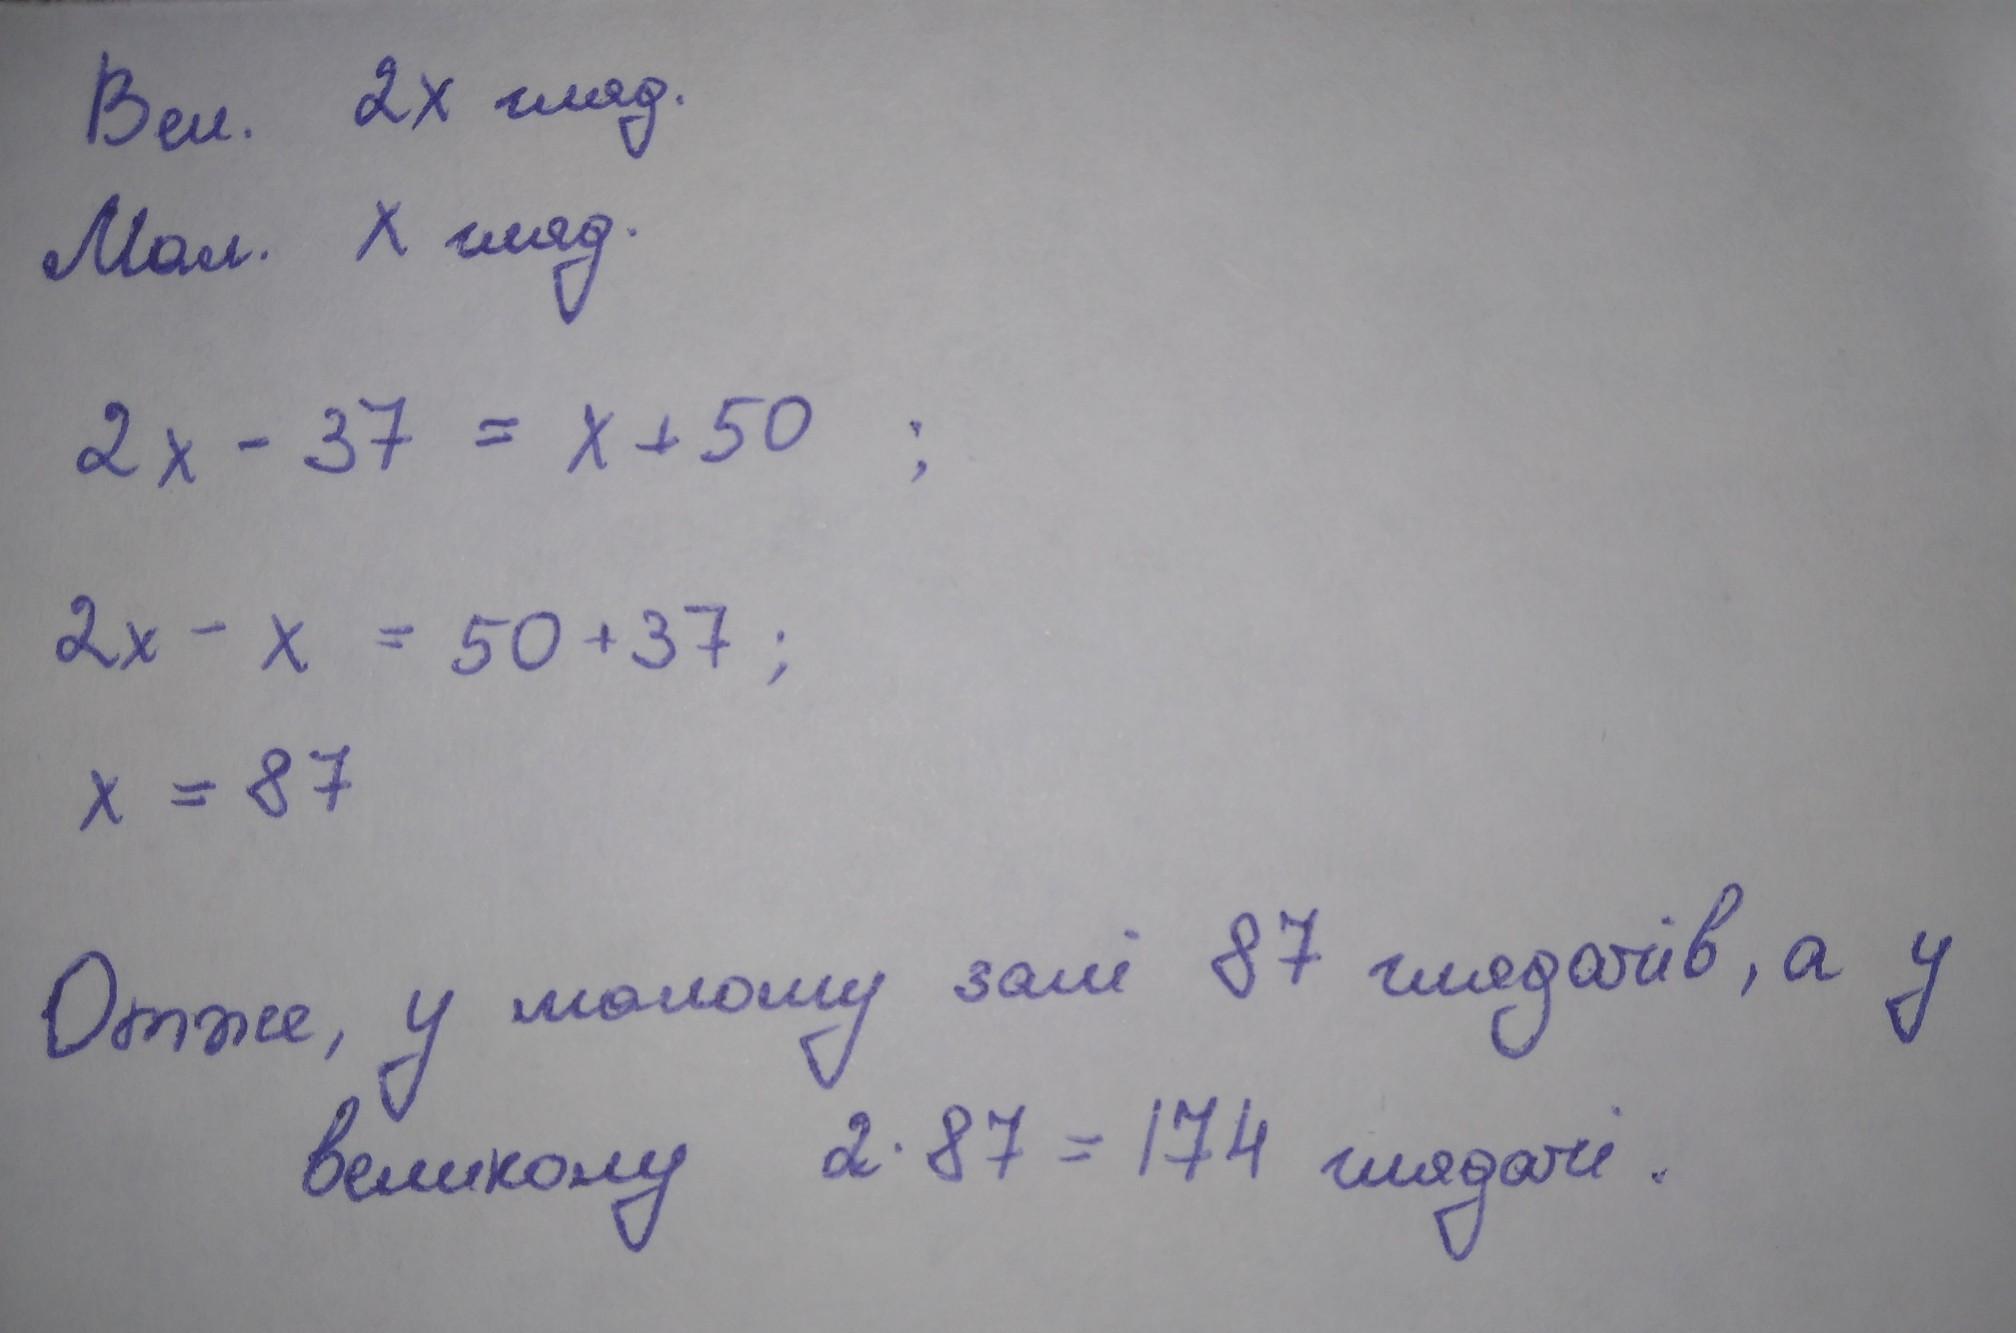 Вел. 2x гляд.
Мал. x гляд.
2x - 37 = x + 50 ;
2x - x = 50 + 37 ;
x = 87
Отже, у малому залі 87 глядачів, а у
великому 2 · 87 = 174 глядачі .